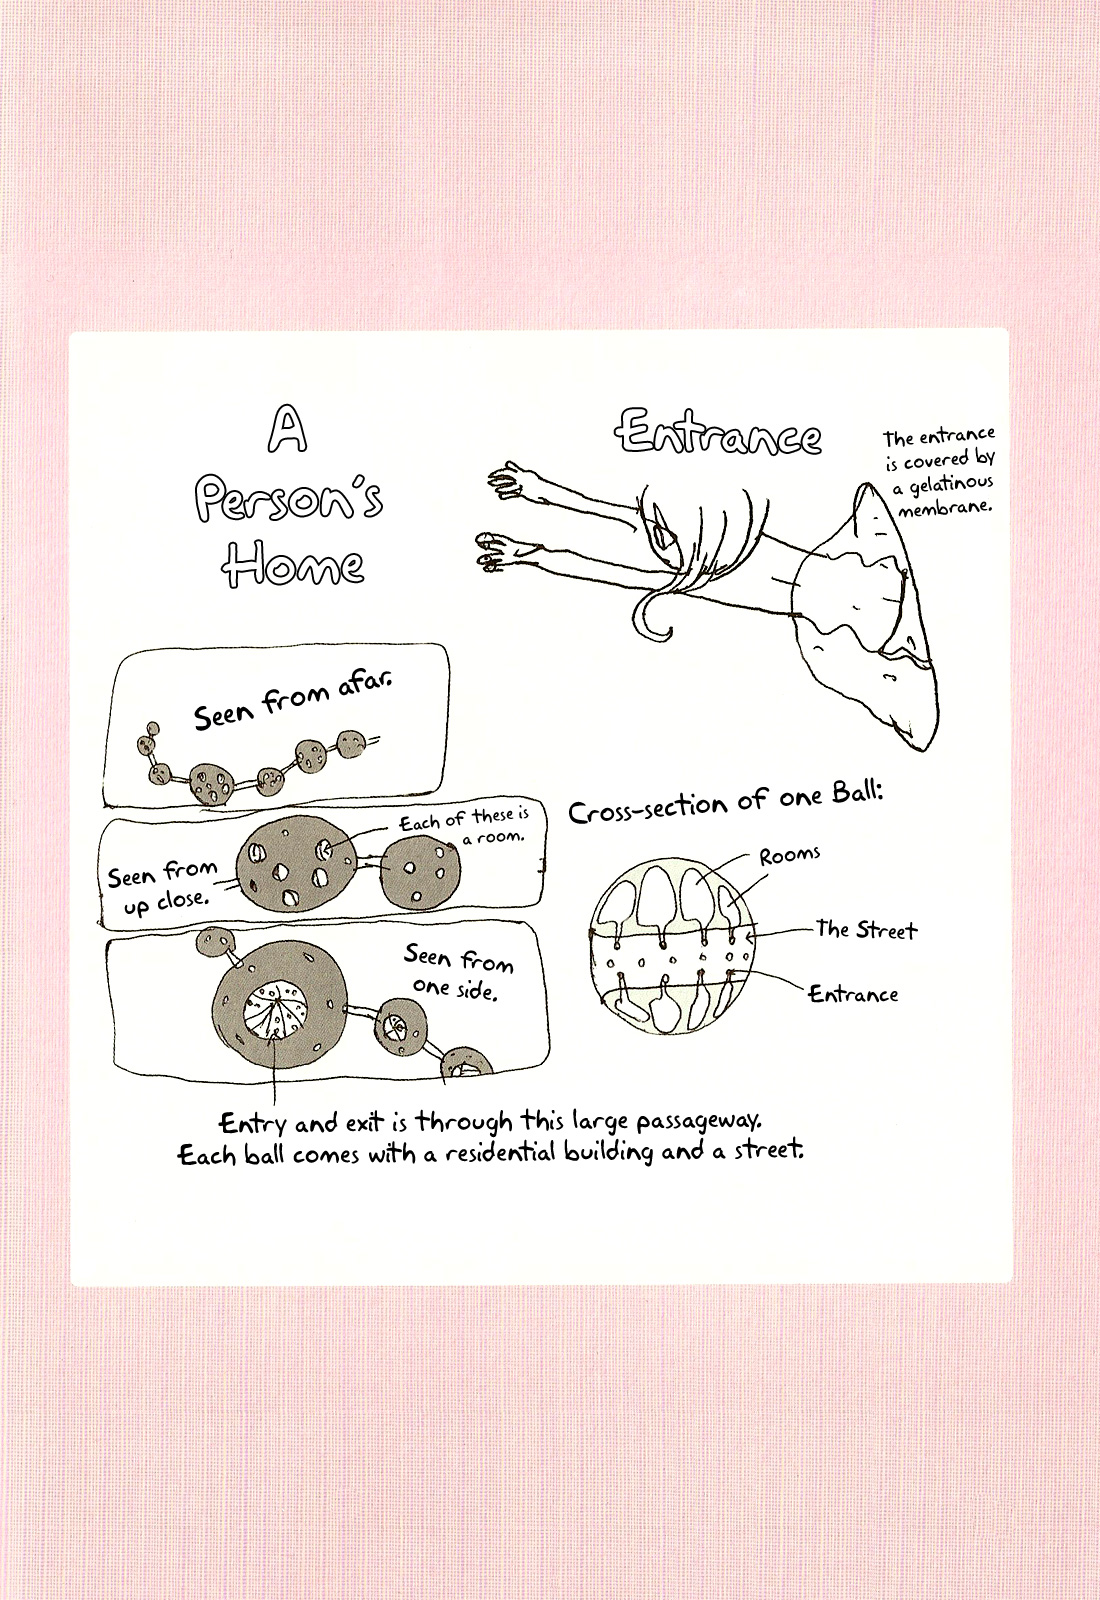 A
Person's
Home
Entrance
The entrance
is covered by
a gelatinous
membrane.
Seen from afar.
Each of these is
a room.
Seen from
up close.
Seen from
one side.
Cross-section of one Ball:
Rooms
The Street
Entrance
Entry and exit is through this large passageway.
Each ball comes with a residential building and a street.